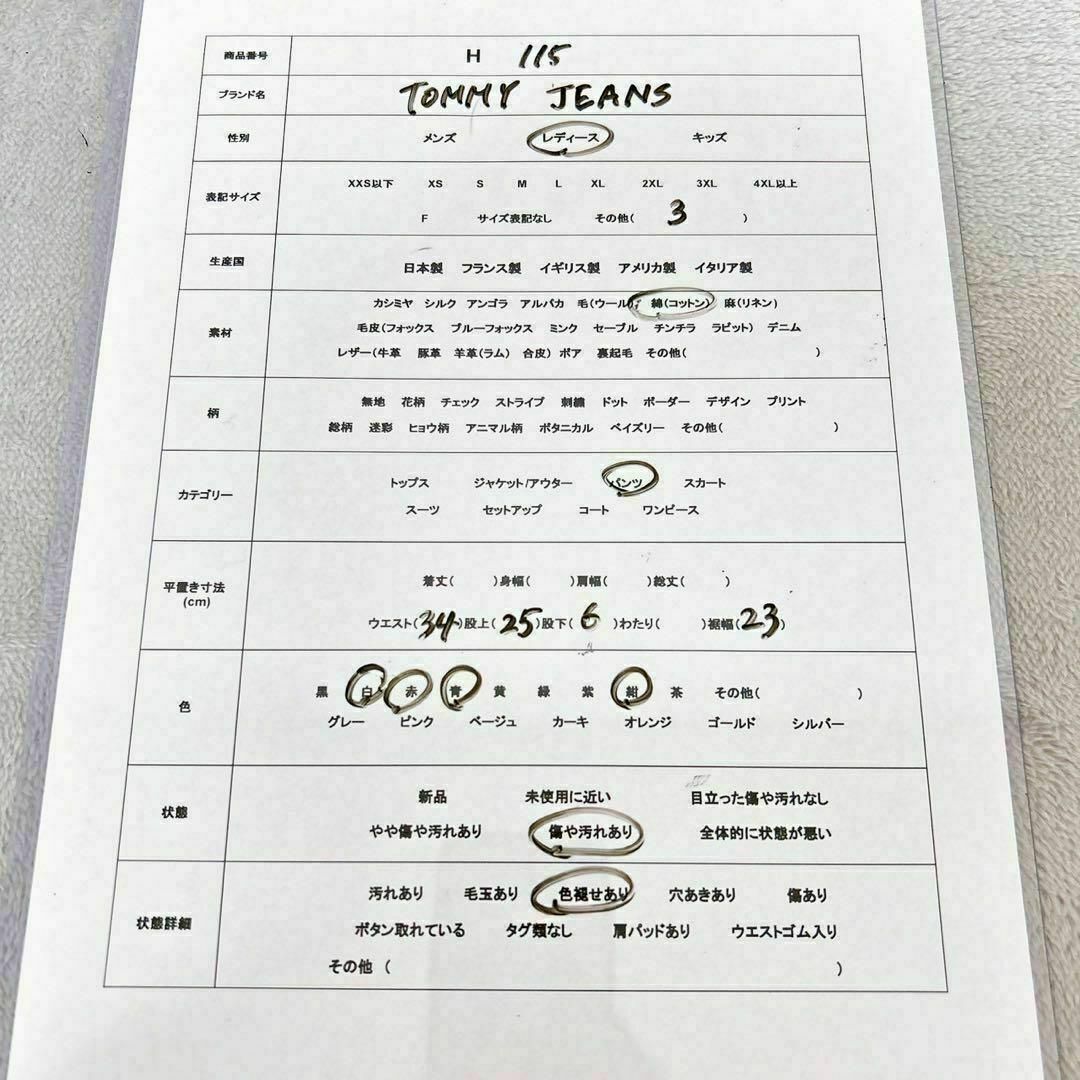 商品番号 H 115
ブランド名 TOMMY JEANS
性別 メンズ レディース キッズ
表記サイズ
XXS以下 XS S M L XL 2XL 3XL 4XL以上
F サイズ表記なし その他( 3 )
生産国 日本製 フランス製 イギリス製 アメリカ製 イタリア製
素材
カシミヤ シルク アンゴラ アルパカ 毛(ウール) 綿(コットン) 麻(リネン)
毛皮(フォックス ブルーフォックス ミンク セーブル チンチラ ラビット) デニム
レザー(牛革 豚革 羊革(ラム) 合皮) ボア 裏起毛 その他( )
柄
無地 花柄 チェック ストライプ 刺繍 ドット ボーダー デザイン プリント
総柄 迷彩 ヒョウ柄 アニマル柄 ボタニカル ペイズリー その他( )
カテゴリー
トップス ジャケット/アウター パンツ スカート
スーツ セットアップ コート ワンピース
平置き寸法
(cm)
着丈( )身幅( )肩幅( )総丈( )
ウエスト(34)股上(25)股下( 6 )わたり( )裾幅(23)
色
黒 白 赤 青 黄 緑 紫 紺 茶 その他( )
グレー ピンク ベージュ カーキ オレンジ ゴールド シルバー
状態
新品 未使用に近い 目立った傷や汚れなし
やや傷や汚れあり 傷や汚れあり 全体的に状態が悪い
状態詳細
汚れあり 毛玉あり 色褪せあり 穴あきあり 傷あり
ボタン取れている タグ類なし 肩パッドあり ウエストゴム入り
その他 ( )